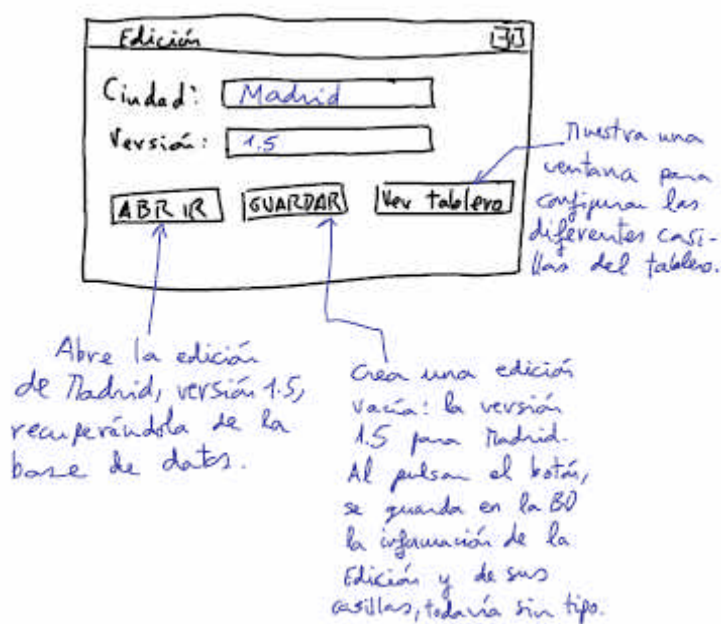 Edición
Ciudad: Madrid
Versión: 1.5
ABRIR GUARDAR Ver tablero
Muestra una
ventana para
configurar las
diferentes casi-
llas del tablero.
Abre la edición
de Madrid, versión 1.5,
recuperándola de la
base de datos.
Crea una edición
vacía: la versión
1.5 para Madrid.
Al pulsar el botón,
se guarda en la BD
la información de la
Edición y de sus
casillas, todavía sin tipo.